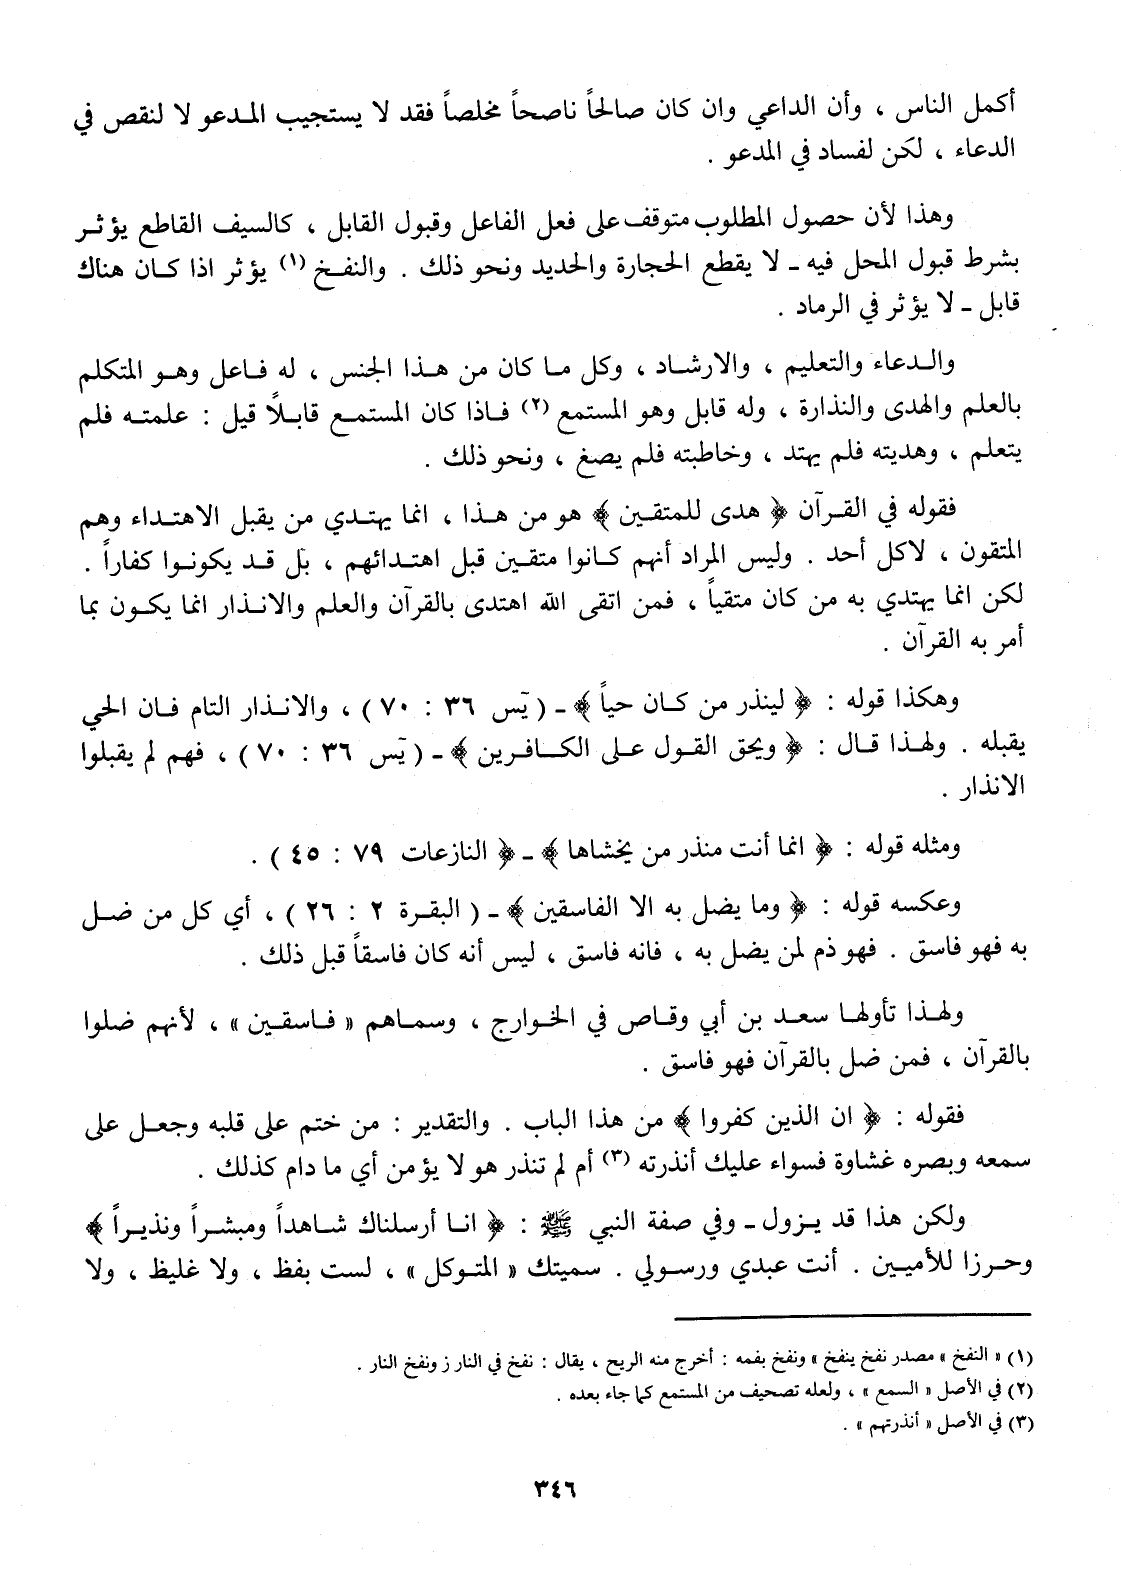 أكمل الناس ، وأن الداعي وان كان صالحاً ناصحاً مخلصاً فقد لا يستجيب المدعو لا لنقص في
الدعاء ، لكن لفساد في المدعو .
وهذا لأن حصول المطلوب متوقف على فعل الفاعل وقبول القابل ، كالسيف القاطع يؤثر
بشرط قبول المحل فيه ـ لا يقطع الحجارة والحديد ونحو ذلك . والنفخ (١) يؤثر اذا كان هناك
قابل ـ لا يؤثر في الرماد .
والدعاء والتعليم ، والارشاد ، وكل ما كان من هذا الجنس ، له فاعل وهو المتكلم
بالعلم والهدى والنذارة ، وله قابل وهو المستمع (٢) فاذا كان المستمع قابلاً قيل : علمته فلم
يتعلم ، وهديته فلم يهتد ، وخاطبته فلم يصغ ، ونحو ذلك .
فقوله في القرآن ﴿ هدى للمتقين ﴾ هو من هذا ، انما يهتدي من يقبل الاهتداء وهم
المتقون ، لاكل أحد . وليس المراد أنهم كانوا متقين قبل اهتدائهم ، بل قد يكونوا كفاراً .
لكن انما يهتدي به من كان متقياً ، فمن اتقى الله اهتدى بالقرآن والعلم والانذار انما يكون بما
أمر به القرآن .
وهكذا قوله : ﴿ لينذر من كان حياً ﴾ ـ ( يٓس ٣٦ : ٧٠ ) ، والانذار التام فان الحي
يقبله . ولهذا قال : ﴿ ويحق القول على الكافرين ﴾ ـ ( يٓس ٣٦ : ٧٠ ) ، فهم لم يقبلوا
الانذار .
ومثله قوله : ﴿ انما أنت منذر من يخشاها ﴾ ـ ﴿ النازعات ٧٩ : ٤٥ ) .
وعكسه قوله : ﴿ وما يضل به الا الفاسقين ﴾ ـ ( البقرة ٢ : ٢٦ ) ، أي كل من ضل
به فهو فاسق . فهو ذم لمن يضل به ، فانه فاسق ، ليس أنه كان فاسقاً قبل ذلك .
ولهذا تأولها سعد بن أبي وقاص في الخوارج ، وسماهم « فاسقين » ، لأنهم ضلوا
بالقرآن ، فمن ضل بالقرآن فهو فاسق .
فقوله : ﴿ ان الذين كفروا ﴾ من هذا الباب . والتقدير : من ختم على قلبه وجعل على
سمعه وبصره غشاوة فسواء عليك أنذرته (٣) أم لم تنذر هو لا يؤمن أي ما دام كذلك .
ولكن هذا قد يزول ـ وفي صفة النبي ﷺ : ﴿ انا أرسلناك شاهداً ومبشراً ونذيراً ﴾
وحرزا للأميين . أنت عبدي ورسولي . سميتك « المتوكل » ، لست بفظ ، ولا غليظ ، ولا
(١) « النفخ » مصدر نفخ ينفخ » ونفخ بفمه : أخرج منه الريح ، يقال : نفخ في النار ز ونفخ النار .
(٢) في الأصل « السمع » ، ولعله تصحيف من المستمع كما جاء بعده .
(٣) في الأصل « أنذرتهم » .
٣٤٦